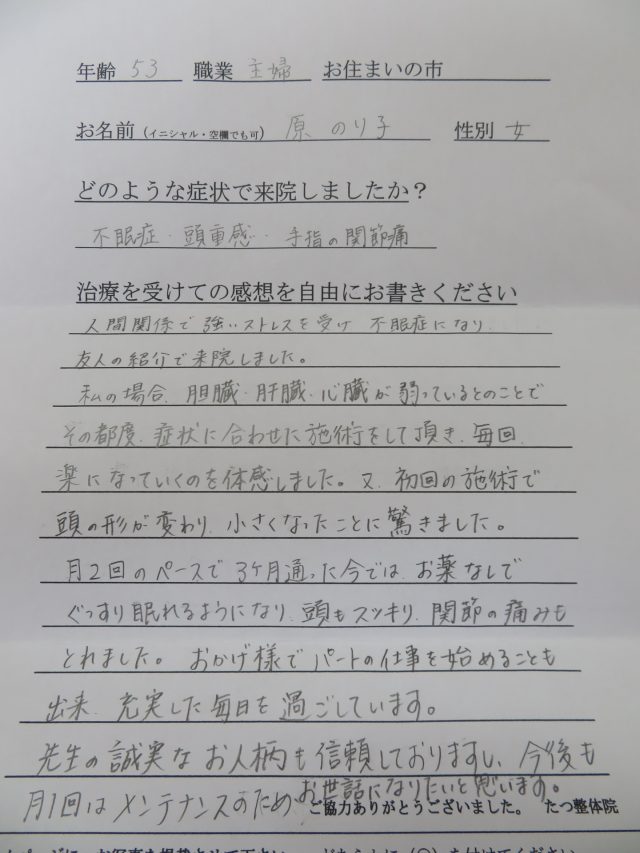 年齢 53 職業 主婦 お住まいの市
お名前（イニシャル・空欄でも可） 原 のり子 性別 女
どのような症状で来院しましたか？
不眠症・頭重感・手指の関節痛
治療を受けての感想を自由にお書きください
人間関係で強いストレスを受け 不眠症になり
友人の紹介で来院しました。
私の場合、胆臓・肝臓・心臓が弱っているとのことで
その都度、症状に合わせた施術をして頂き、毎回、
楽になっていくのを体感しました。又、初回の施術で
頭の形が変わり、小さくなったことに驚きました。
月2回のペースで 3ヶ月通った今では、お薬なしで
ぐっすり眠れるようになり、頭もスッキリ、関節の痛みも
とれました。 おかげ様でパートの仕事を始めることも
出来、充実した毎日を過ごしています。
先生の誠実なお人柄も信頼しておりますし、今後も
月1回はメンテナンスのため、お世話になりたいと思います。
ご協力ありがとうございました。 たつ整体院